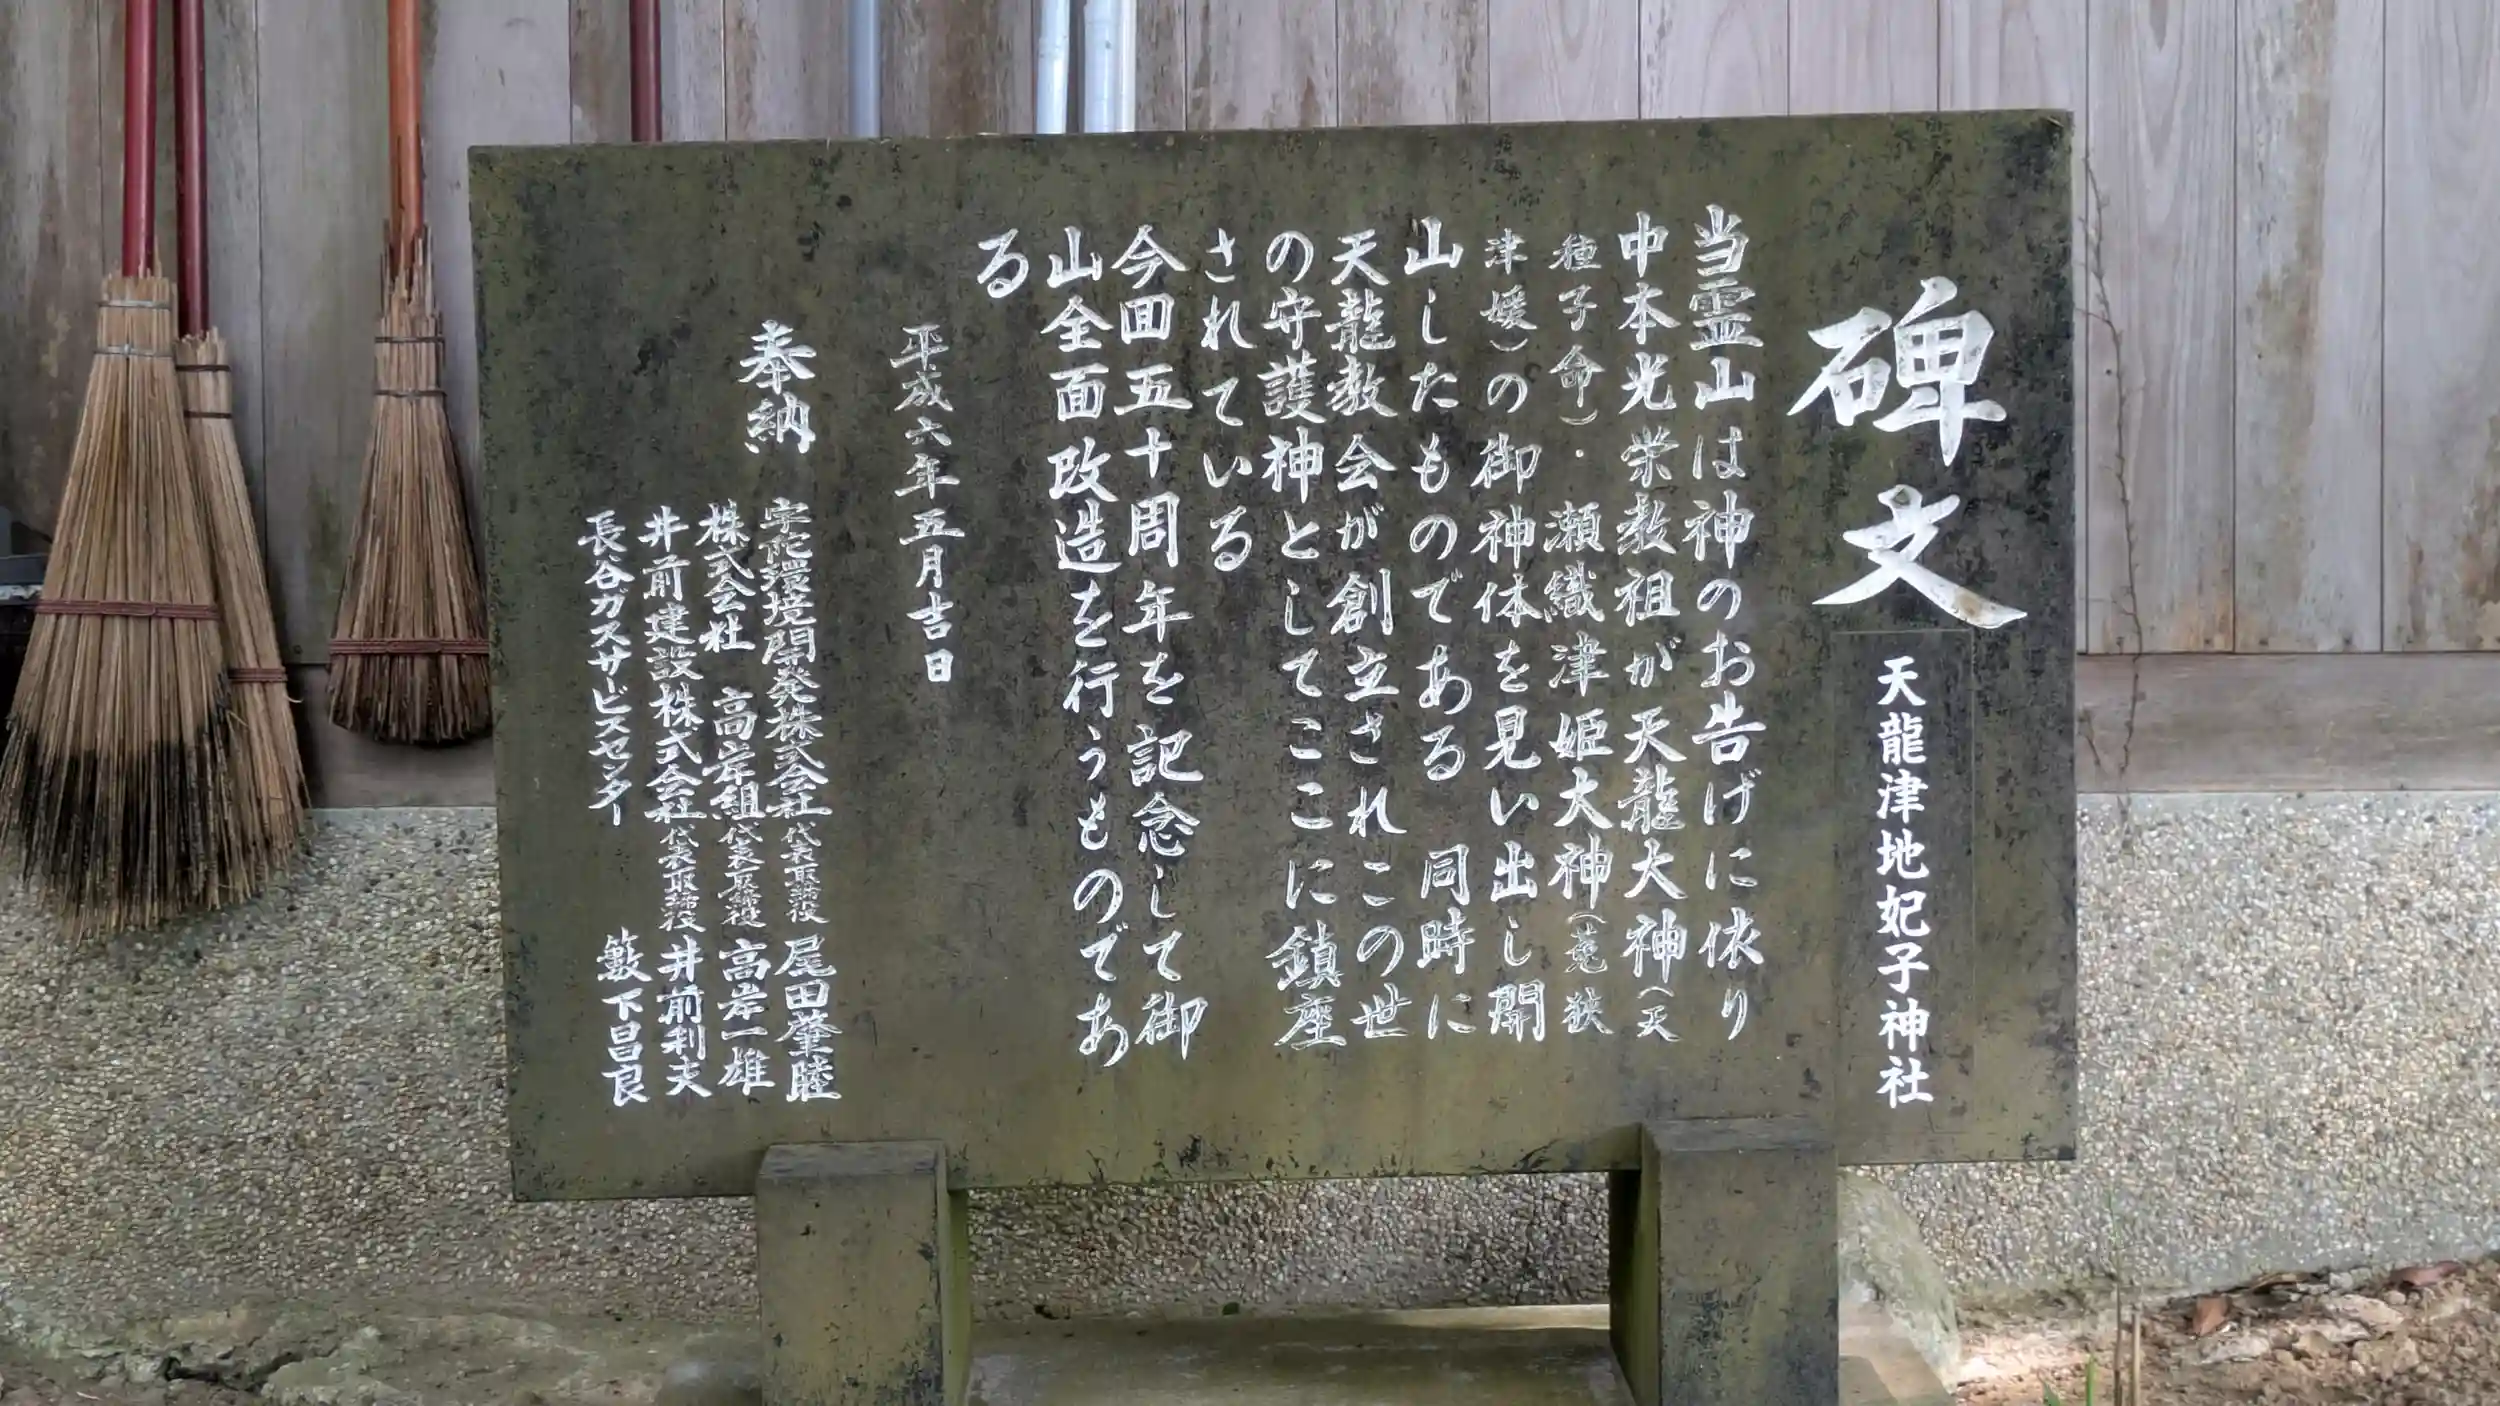 碑文
天龍津地妃子神社
当霊山は神のお告げに依り
中本光栄教祖が天龍大神(天
種子命)・瀬織津姫大神(菟狭
津媛)の御神体を見い出し開
山したものである 同時に
天龍教会が創立されこの世
の守護神としてここに鎮座
されている
今回五十周年を記念して御
山全面改造を行うものであ
る
平成六年五月吉日
奉納
宇陀環境開発株式会社 代表取締役 尾田肇睦
株式会社 高岸組 代表取締役 高岸一雄
井前建設株式会社 代表取締役 井前利夫
長谷ガスサービスセンター 籔下昌良